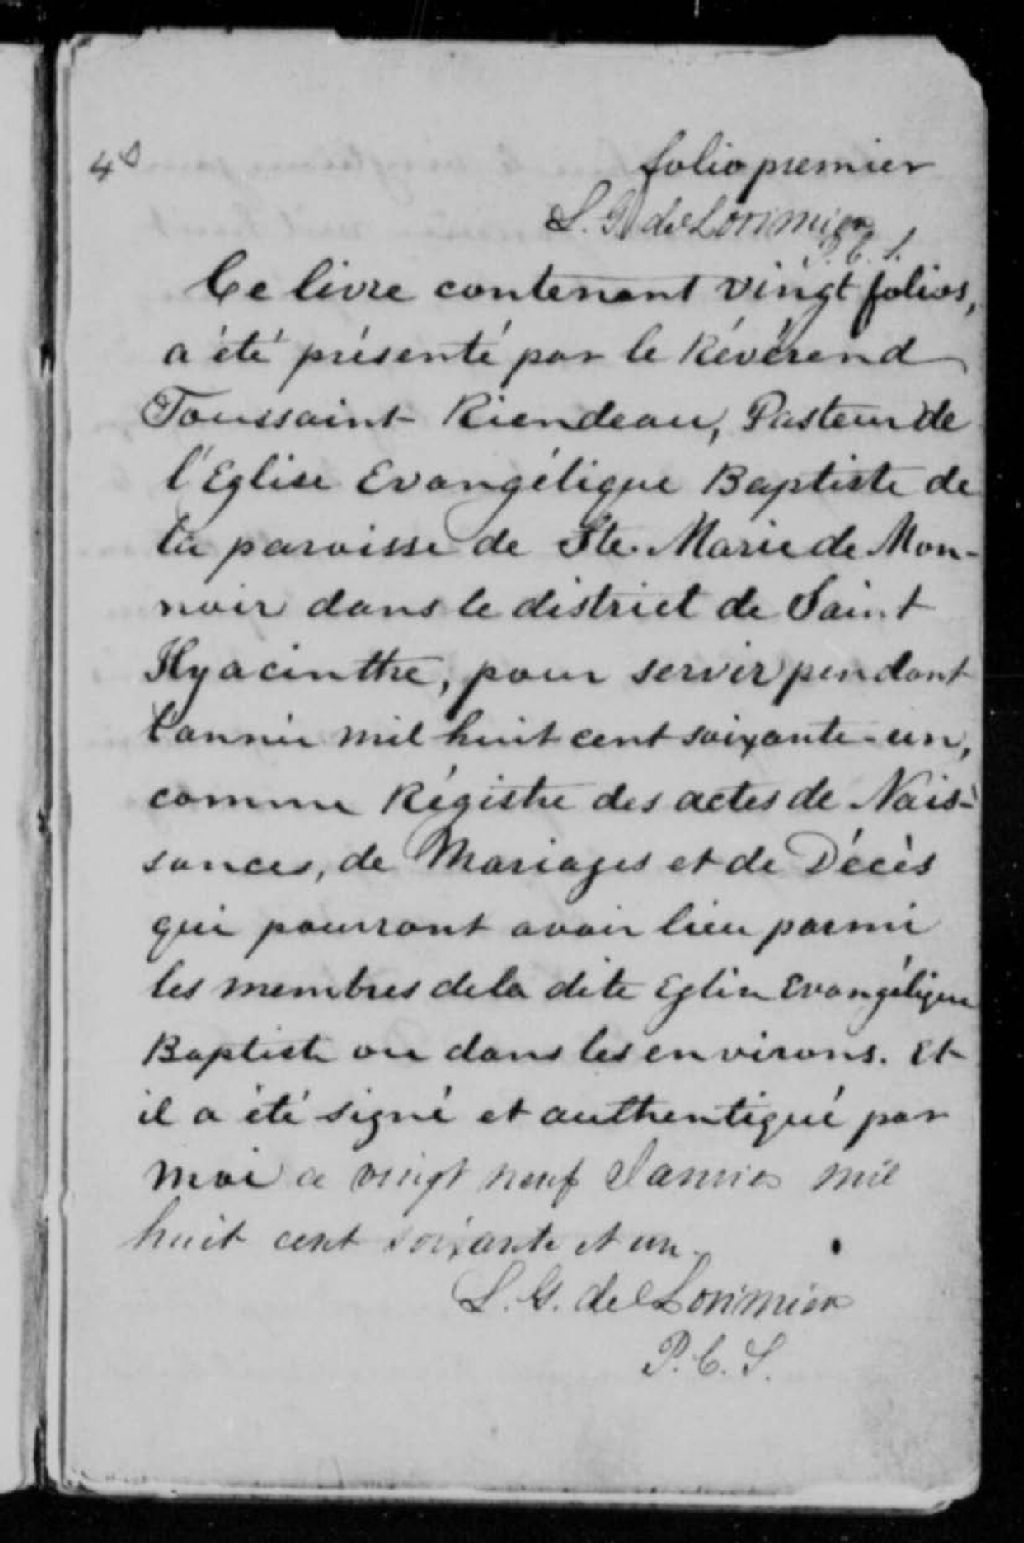 folio premier
L. G. de Lorimier
P. C. S.
Ce livre contenant vingt folios,
a été présenté par le Révérend
Toussaint Riendeau, Pasteur de
l'Eglise Evangélique Baptiste de
la paroisse de Ste. Marie de Mon-
noir dans le district de Saint
Hyacinthe, pour servir pendant
l'année mil huit cent soixante-un,
comme Régistre des actes de Nais-
sances, de Mariages et de Décès
qui pourront avoir lieu parmi
les membres de la dite Eglise Evangélique
Baptiste ou dans les environs. Et
il a été signé et authentiqué par
moi ce vingt neuf Janvier mil
huit cent soixante et un.
L. G. de Lorimier
P. C. S.